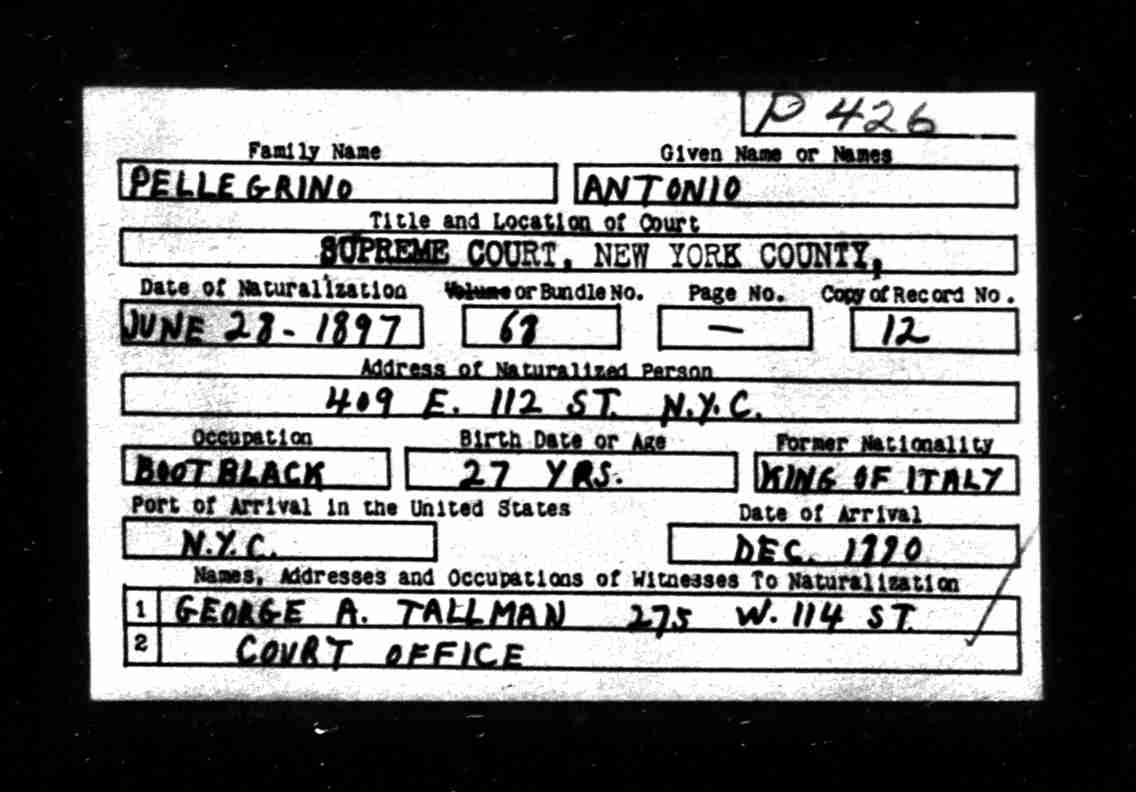 P 426
Family Name Given Name or Names
PELLEGRINO ANTONIO
Title and Location of Court
SUPREME COURT, NEW YORK COUNTY,
Date of Naturalization Volume or Bundle No. Page No. Copy of Record No.
JUNE 28 - 1897 68 — 12
Address of Naturalized Person
409 E. 112 ST. N.Y.C.
Occupation Birth Date or Age Former Nationality
BOOTBLACK 27 YRS. KING OF ITALY
Port of Arrival in the United States Date of Arrival
N.Y.C. DEC.
Names, Addresses and Occupations of Witnesses To Naturalization
1 GEORGE A. TALLMAN 275 W. 114 ST.
2 COURT OFFICE